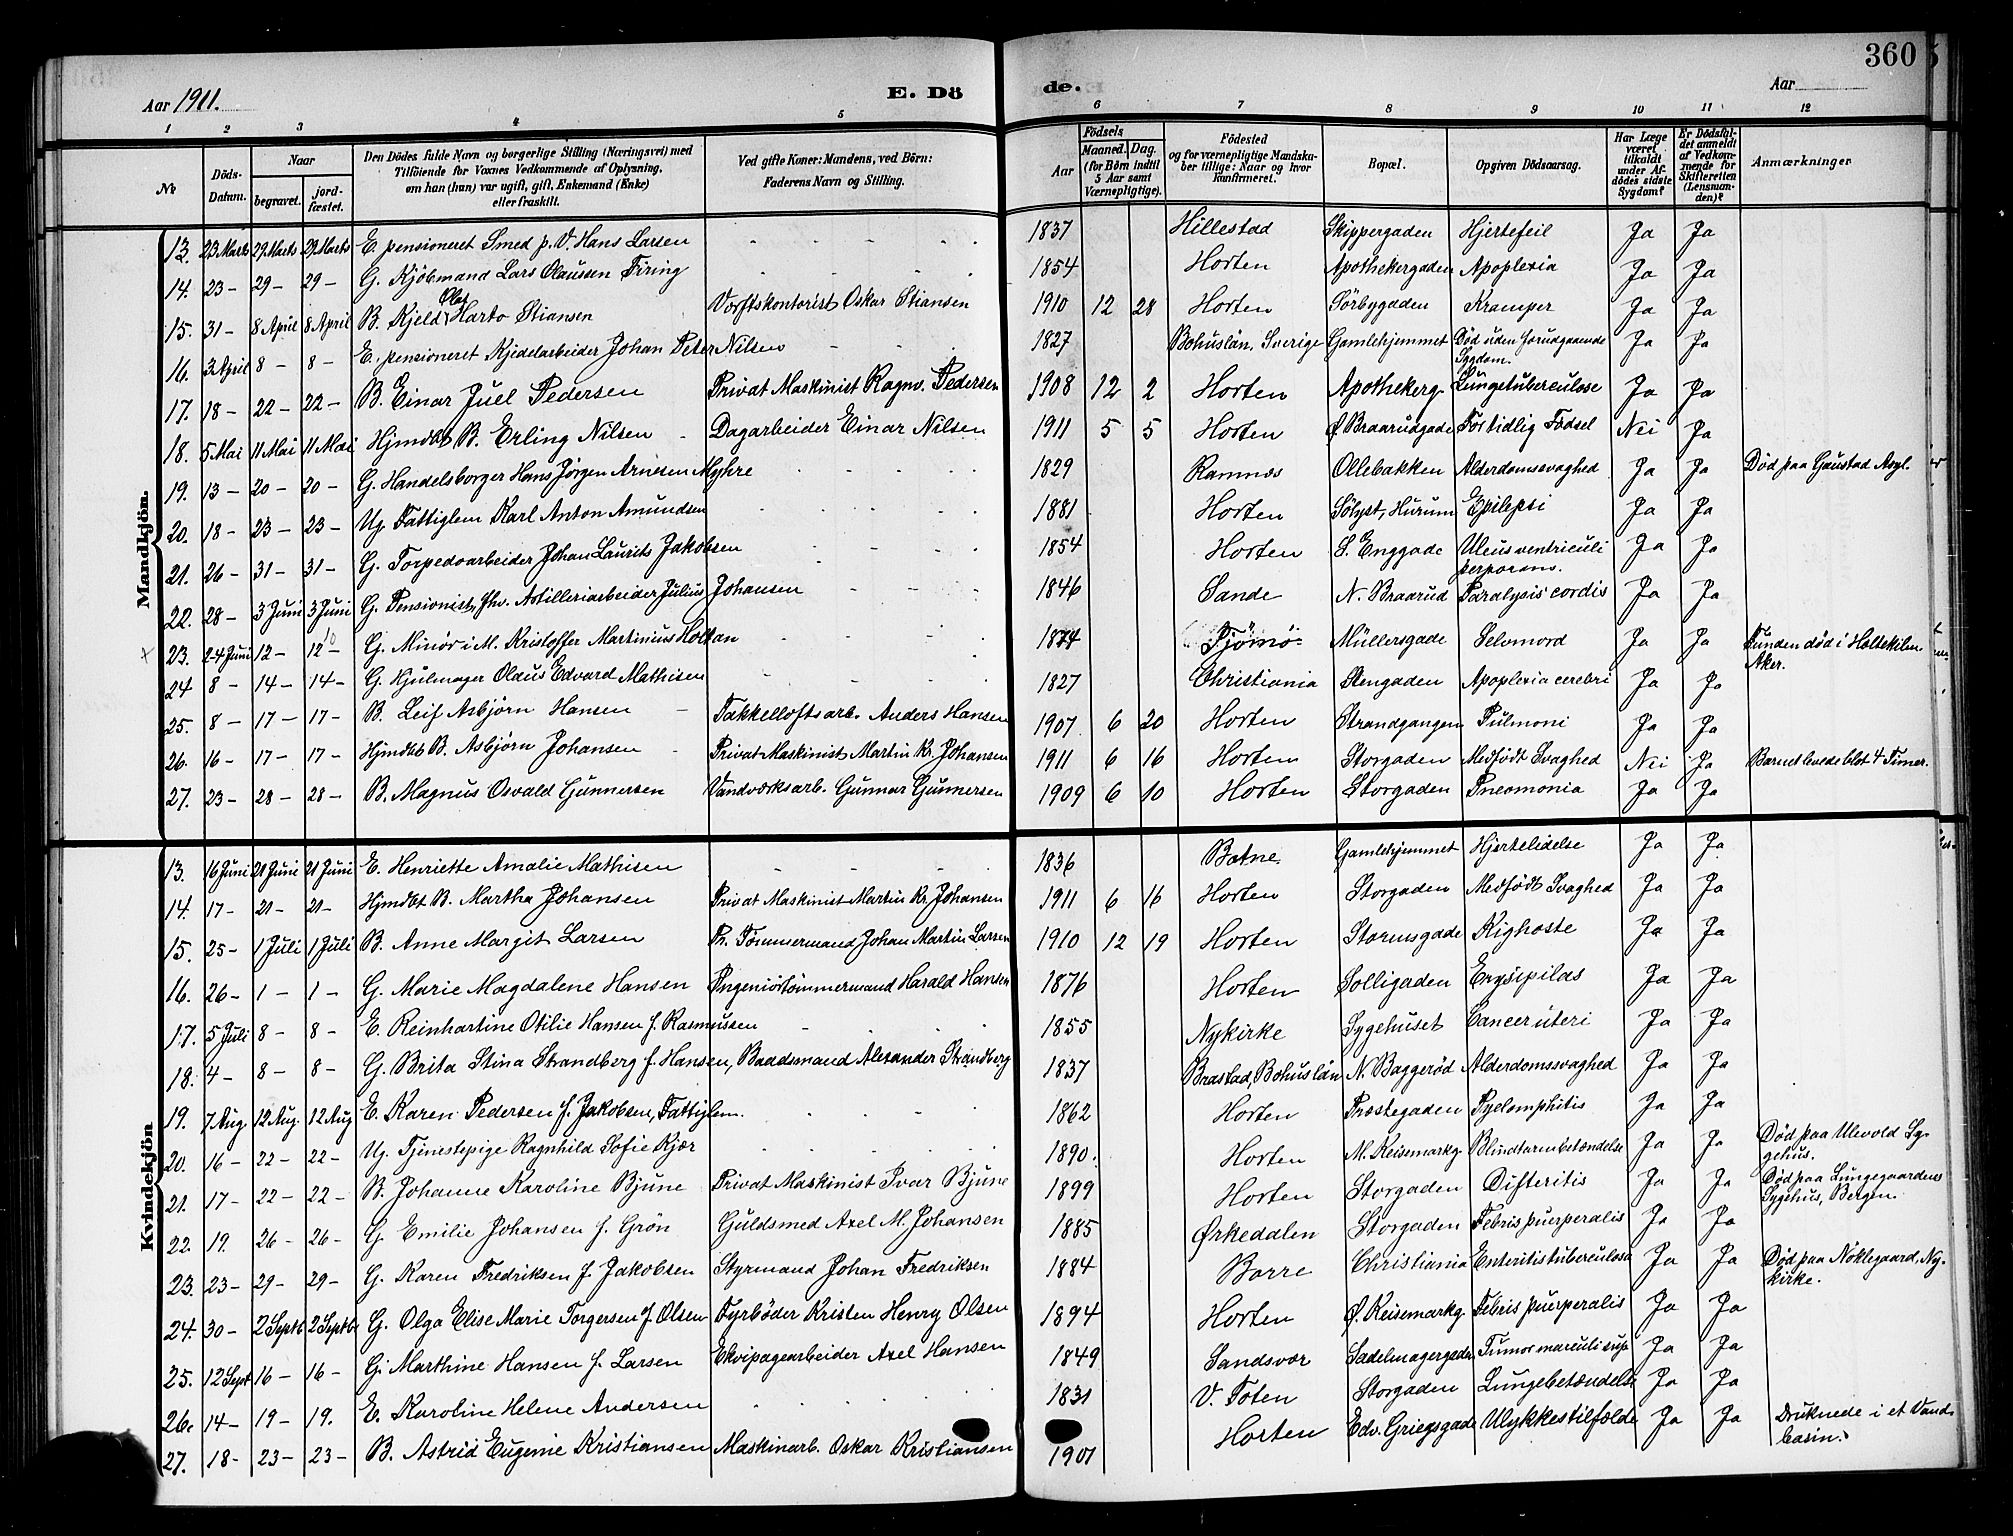 360
Aar 1911. E. Dö de. Aar
1 2 3 4 5 6 7 8 9 10 11 12
No
Döds-Datum.
Naar
begravet.
jord-fæstet.
Den Dödes fulde Navn og borgerlige Stilling (Næringsvei) med
Tilföiende for Voxnes Vedkommende af Oplysning,
om han (hun) var ugift, gift, Enkemand (Enke)
eller fraskilt.
Ved gifte Koner: Mandens, ved Börn:
Faderens Navn og Stilling.
Födsels
Aar
Maaned. Dag.
(for Börn indtil
5 Aar samt
Værnepligtige).
Födested
og for værnepligtige Mandska-
ber tillige: Naar og hvor
konfirmeret.
Bopæl.
Opgiven Dödsaarsag.
Har Læge
været
tilkaldt
under Af-
dödes sidste
Sygdom?
Er Dödsfal-
det anmeldt
af Vedkom-
mende for
Skifteretten
(Lensman-
den)?
Anmærkninger
Mandkjön.
13. 23 Marts 29 Marts 29 Marts E. pensioneret Smed p. V. Hans Larsen - - - - 1837 Hillestad Skippergaden Hjertefeil Ja Ja
14. 23 - 29 - 29 - G. Kjöbmand Lars Olaussen Firing - - - - 1854 Horten Apothekergaden Apoplexia Ja Ja
Olaf
15. 31 - 8 April 8 April B. Kjeld Harto Stiansen Værftskontorist Oskar Stiansen 1910 12 28 Horten Sörbygaden Kramper Ja Ja
16. 3 April 8 - 8 - E. pensioneret Kjedelarbeider Johan Peter Nilsen - - - 1827 Bohuslän, Sverige Gamlehjemmet Död uden forudgaaende Ja Ja
Sygdom.
17. 18 - 22 - 22 - B. Einar Juel Pedersen Privat Maskinist Ragnv. Pedersen 1908 12 2 Horten Apothekerg. Lungetuberculose Ja Ja
18. 5 Mai 11 Mai 11 Mai Hjmdbt B. Erling Nilsen - Dagarbeider Einar Nilsen 1911 5 5 Horten Ø. Braarudgade For tidlig Födsel Nei Ja
19. 13 - 20 - 20 - G. Handelsborger Hans Jørgen Arnesen Myhre - - - 1829 Ramnæs Ollebakken Alderdomssvaghed Ja Ja Död paa Gaustad Asyl.
20. 18 - 23 - 23 - Ug. Fattiglem Karl Anton Amundsen - - - - 1881 Horten Sölyst, Hurum Epilepsi Ja Ja
21. 26 - 31 - 31 - G. Torpedoarbeider Johan Laurits Jakobsen - - - 1854 Horten S. Enggade Ulcus ventriculi Ja Ja
perforans.
22. 28 - 3 Juni 3 Juni G. Pensionist, fhv. Artilleriarbeider Julius Johansen - - - 1846 Sande N. Braarud Paralysis cordis Ja Ja
23. 2-4 Juni 12 - 12 - G. Minör i M. Kristoffer Martinius Holtan - - - 1874 Tjömö Müllersgade Selvmord Ja Ja Funden död i Holtekilen
Aker.
24 8 - 14 - 14 - G. Hjulmager Olaus Edvard Mathisen - - - 1827 Christiania Stengaden Apoplexia cerebri Ja Ja
25. 8 - 17 - 17 - B. Leif Asbjörn Hansen - Takkelloftsarb. Anders Hansen 1907. 6 20 Horten Strandgangen Pulmoni Ja Ja
26. 16 - 17 - 17 - Hjmdbt B. Asbjörn Johansen - Privat Maskinist Martin Kr. Johansen 1911 6 16 Horten Storgaden Medfödt Svaghed Nei Ja Barnet levede blot 4 Timer.
27. 23 - 28 - 28 - B. Magnus Osvald Gunnersen Vandværksarb. Gunnar Gunnersen 1909 6 10 Horten Storgaden Pneomonia Ja Ja
Kvindekjön
13. 16 Juni 21 Juni 21 Juni E. Henriette Amalie Mathisen - - - - 1836 Botne Gamlehjemmet Hjertelidelse Ja Ja
14. 17 - 21 - 21 - Hjmdbt B. Martha Johansen Privat Maskinist Martin Kr. Johansen 1911 6 16 Horten Storgaden Medfödt Svaghed Ja Ja
15. 25 - 1 Juli 1 Juli B. Anne Margit Larsen Pr. Tömmermand Johan Martin Larsen 1910 12 19 Horten Stormsgade Kighoste Ja Ja
16. 26 - 1 - 1 - G. Marie Magdalene Hansen Ingeniörtömmermand Harald Hansen 1876 Horten Solligaden Erysipilas Ja Ja
17. 5 Juli 8 - 8 - E. Reinhartine Otilie Hansen f. Rasmussen - - - 1855 Nykirke Sygehuset Cancer uteri Ja Ja
18. 4 - 8 - 8 - G. Brita Stina Strandberg f. Hansen, Baadsmand Alexander Strandberg 1837 Brastad, Bohuslän N. Baggeröd Alderdomssvaghed Ja Ja
19. 7 Aug. 12 Aug. 12 Aug E. Karen Pedersen f. Jakobsen, Fattiglem. - - - 1862 Horten Præstegaden Pyelomphitis Ja Ja
20. 16 - 22 - 22 - Ug. Tjenestepige Ragnhild Sofie Kjær - - - - 1890. Horten M. Reisemarkg. Blindtarmbetændelse Ja Ja Död paa Ulevold Sy-
gehus.
21. 17 - 22 - 22 - B. Johanne Karoline Bjune Privat Maskinist Ivar Bjune 1899 Horten Storgaden Difteritis Ja Ja Död paa Lungegaardens
Sygehus, Bergen.
22. 19. 26 - 26 - G. Emilie Johansen f. Grön Guldsmed Axel M. Johansen 1885 Ørkedalen Storgaden Febris puerperalis Ja Ja
23. 23 - 29 - 29 - G. Karen Fredriksen f. Jakobsen Styrmand Johan Fredriksen 1884 Borre Christiania Enteritis tuberculosa Ja Ja Död paa Nöklegaard, Ny-
kirke.
24. 30 - 2 Septb 2 Septb G. Olga Elise Marie Torgersen f. Olsen Fyrböder Kristen Henry Olsen 1894 Horten Ø. Reisemarkg. Febris puerperalis Ja Ja
25. 12 Sept 16 - 16 - G. Marthine Hansen f. Larsen Ekvipagearbeider Axel Hansen 1849 Sandsvær Sadelmagergaden Tumor Ja Ja
26. 14 - 19 - 19. E. Karoline Helene Andersen - - - - 1831 V. Toten Storgaden Lungebetændelse Ja Ja
27. 18 - 23 - 23 - B. Astrid Eugenie Kristiansen Maskinarb. Oskar Kristiansen 1901 Horten Edv. Griegsgade Ulykkestilfælde Ja Ja Druknede i et Vand-
basin.